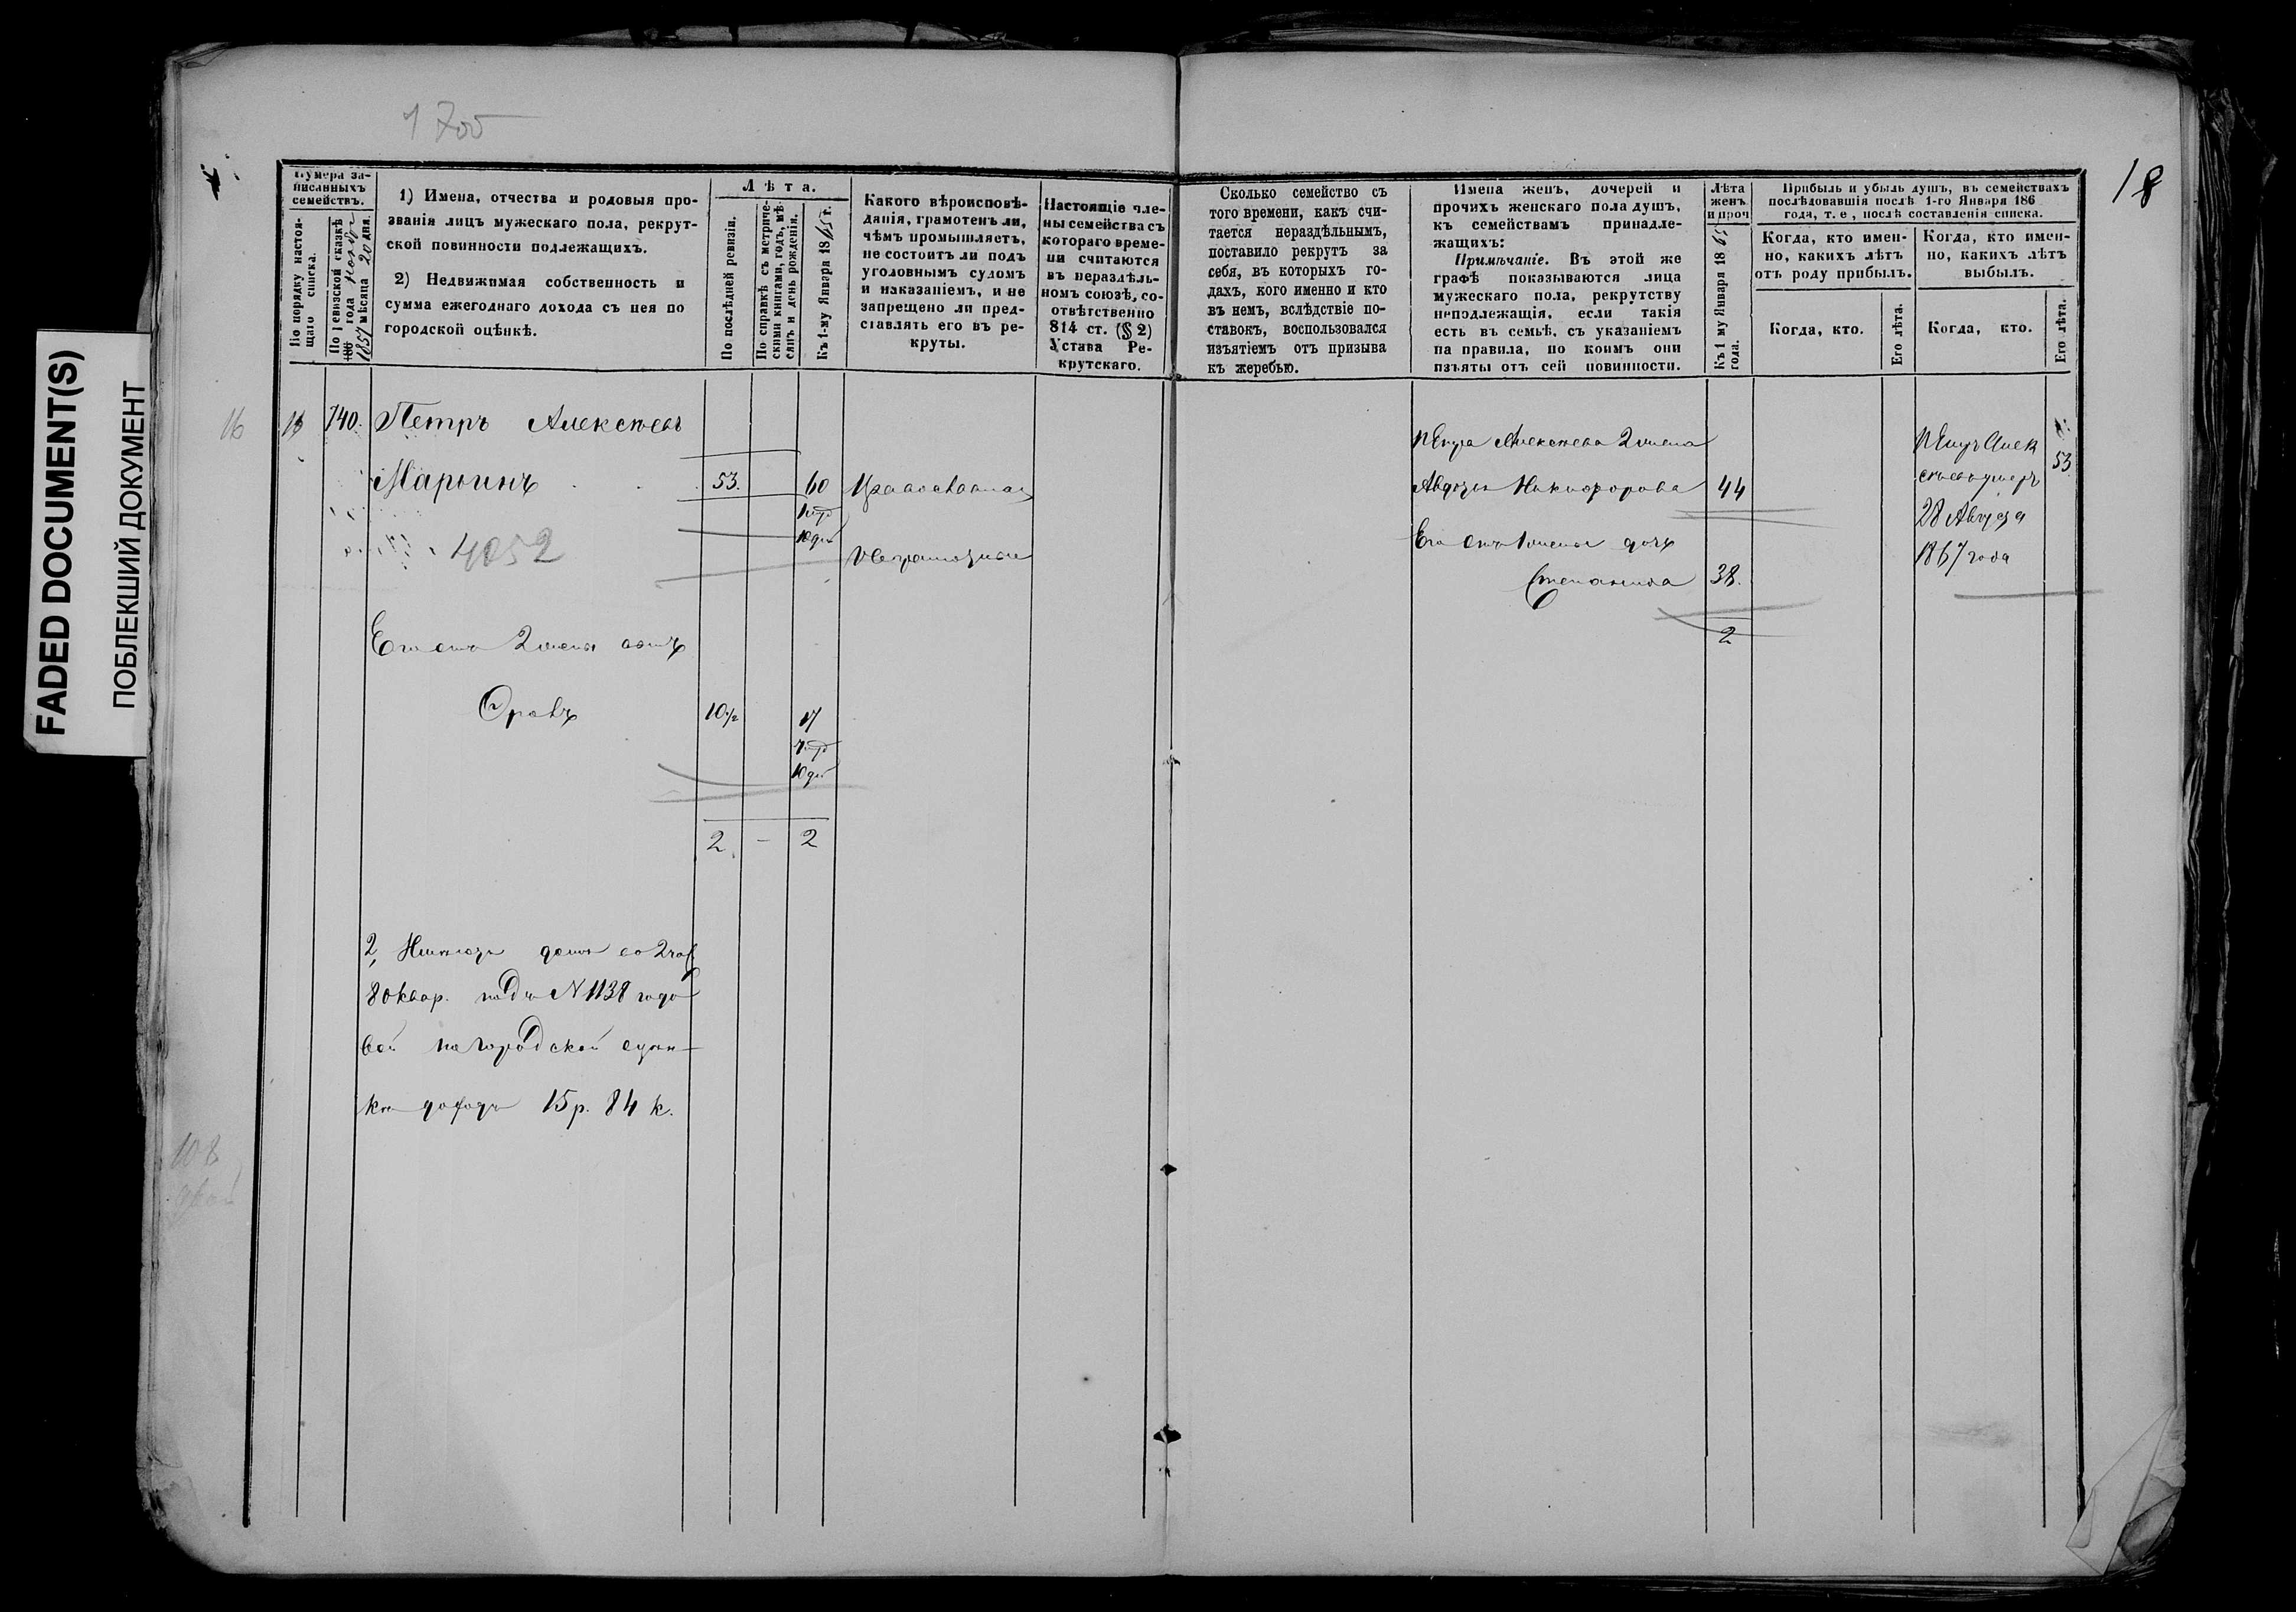 FADED DOCUMENT(S)
ПОБЛЕКШИЙ ДОКУМЕНТ
18
Нумера за-
писанныхъ
семействъ.
По порядку настоя-
щаго списка.
По Ревизской сказкѣ
186 года
1857 мѣсяца 20 дня.
1) Имена, отчества и родовыя про-
званія лицъ мужескаго пола, рекрут-
ской повинности подлежащихъ.
2) Недвижимая собственность и
сумма ежегоднаго дохода съ нея по
городской оцѣнкѣ.
Лѣта.
По послѣдней ревизіи.
По справкѣ съ метриче-
скими книгами, годъ, мѣ-
сяцъ и день рожденія.
Къ 1-му Января 1865 г.
Какого вѣроисповѣ-
данія, грамотенъ ли,
чѣмъ промышляетъ,
не состоитъ ли подъ
уголовнымъ судомъ
и наказаніемъ, и не
запрещено ли пред-
ставлять его въ ре-
круты.
Настоящіе чле-
ны семейства съ
котораго време-
ни считаются
въ нераздѣль-
номъ союзѣ, со-
отвѣтственно
814 ст. (§ 2)
Устава Ре-
крутскаго.
Сколько семейство съ
того времени, какъ счи-
тается нераздѣльнымъ,
поставило рекрутъ за
себя, въ которыхъ го-
дахъ, кого именно и кто
въ немъ, вслѣдствіе по-
ставокъ, воспользовался
изъятіемъ отъ призыва
къ жеребью.
Имена женъ, дочерей и
прочихъ женскаго пола душъ,
къ семействамъ принадле-
жащихъ:
Примѣчаніе. Въ этой же
графѣ показываются лица
мужескаго пола, рекрутству
неподлежащія, если такія
есть въ семьѣ, съ указаніемъ
на правила, по коимъ они
изъяты отъ сей повинности.
Лѣта
женъ
и проч
Къ 1 му Января 1865
года.
Прибыль и убыль душъ, въ семействахъ
послѣдовавшія послѣ 1-го Января 186
года, т. е, послѣ составленія списка.
Когда, кто имен-
но, какихъ лѣтъ
отъ роду прибылъ.
Когда, кто имен-
но, какихъ лѣтъ
выбылъ.
Когда, кто.
Его лѣта.
Когда, кто.
Его лѣта.
16
740. Петръ Алексѣевъ
Марьинъ 53. 60 Православнаго
10 дн
неграмотный
4052
Его отъ 2 жены сынъ
10 1/2 17
10 дн
2. – 2
2, Имѣютъ домъ во 2 час
80 квар. подъ N 1138 годо
вой по городской оцѣн-
кѣ доходъ 15 р. 84 к.
108
Петра Алексѣева 2 жена
Авдотья Никифорова 44
Его отъ 1 жены дочь
Степанида 38.
2
Петръ Алек
сѣевъ умеръ 53
28 Августа
1867 года